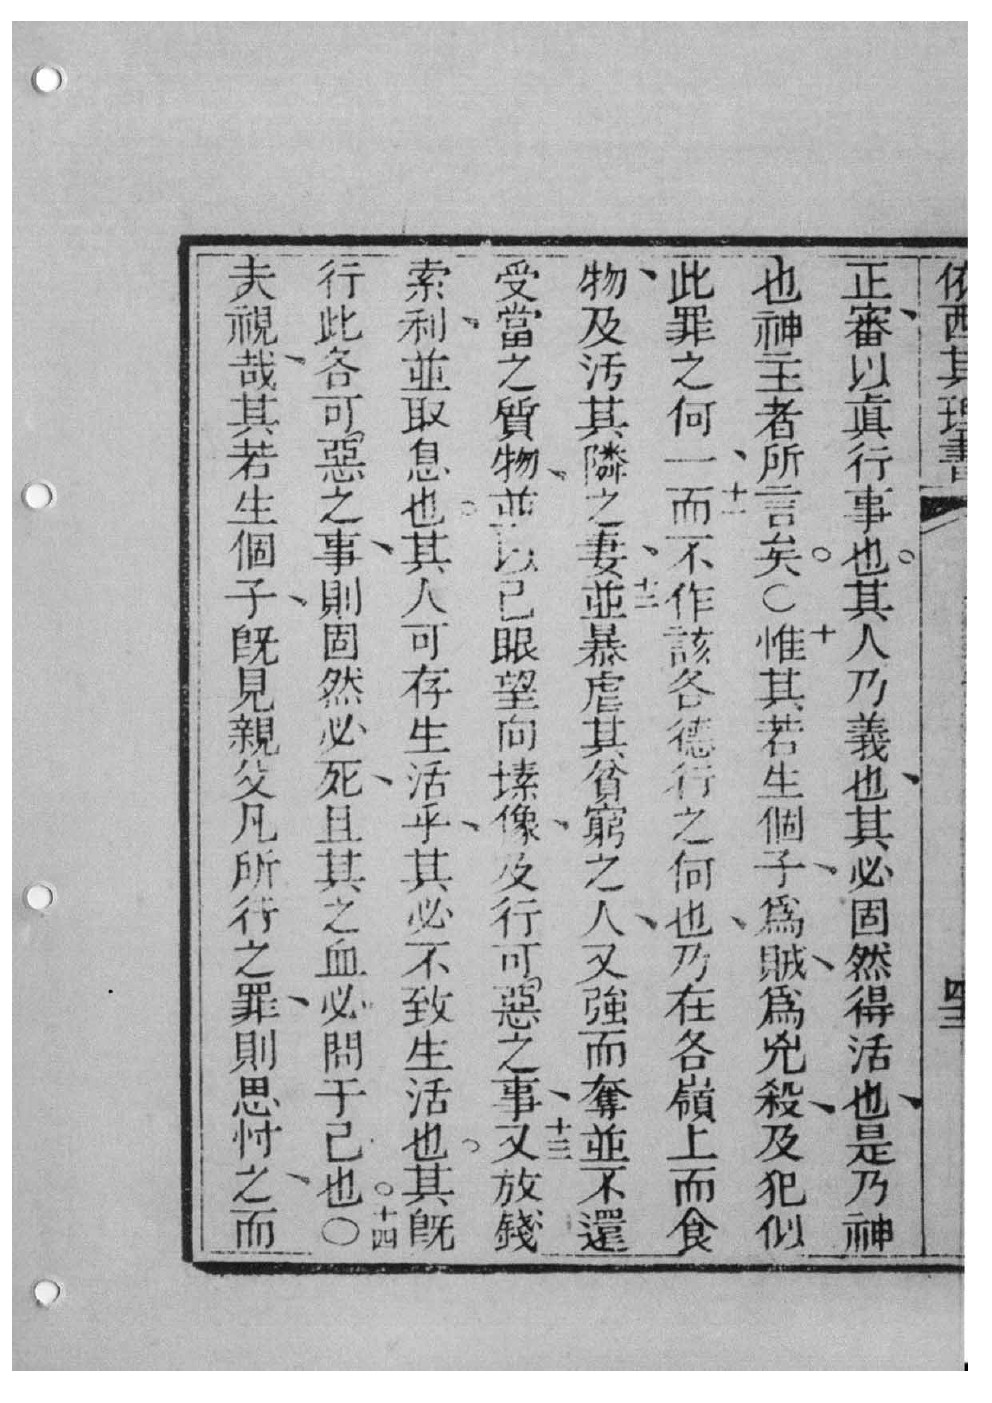 依西其理書 四三
正審以眞行事也。其人乃義也、其必固然得活也、是乃神
也神主者所言矣。〇十惟其若生個子、爲賊、爲兇殺、及犯似
此罪之何一、十一而不作該各德行之何也、乃在各嶺上而食
物、及汚其隣之妻、十二並暴虐其貧窮之人、又強而奪並不還
受當之質物、並以己眼望向塐像、及行可惡之事、十三又放錢
索利、並取息也。其人可存生活乎、其必不致生活也。其旣
行此各可惡之事、則固然必死、且其之血必問于己也。〇十四
夫視哉、其若生個子、旣見親父凡所行之罪、則思忖之、而